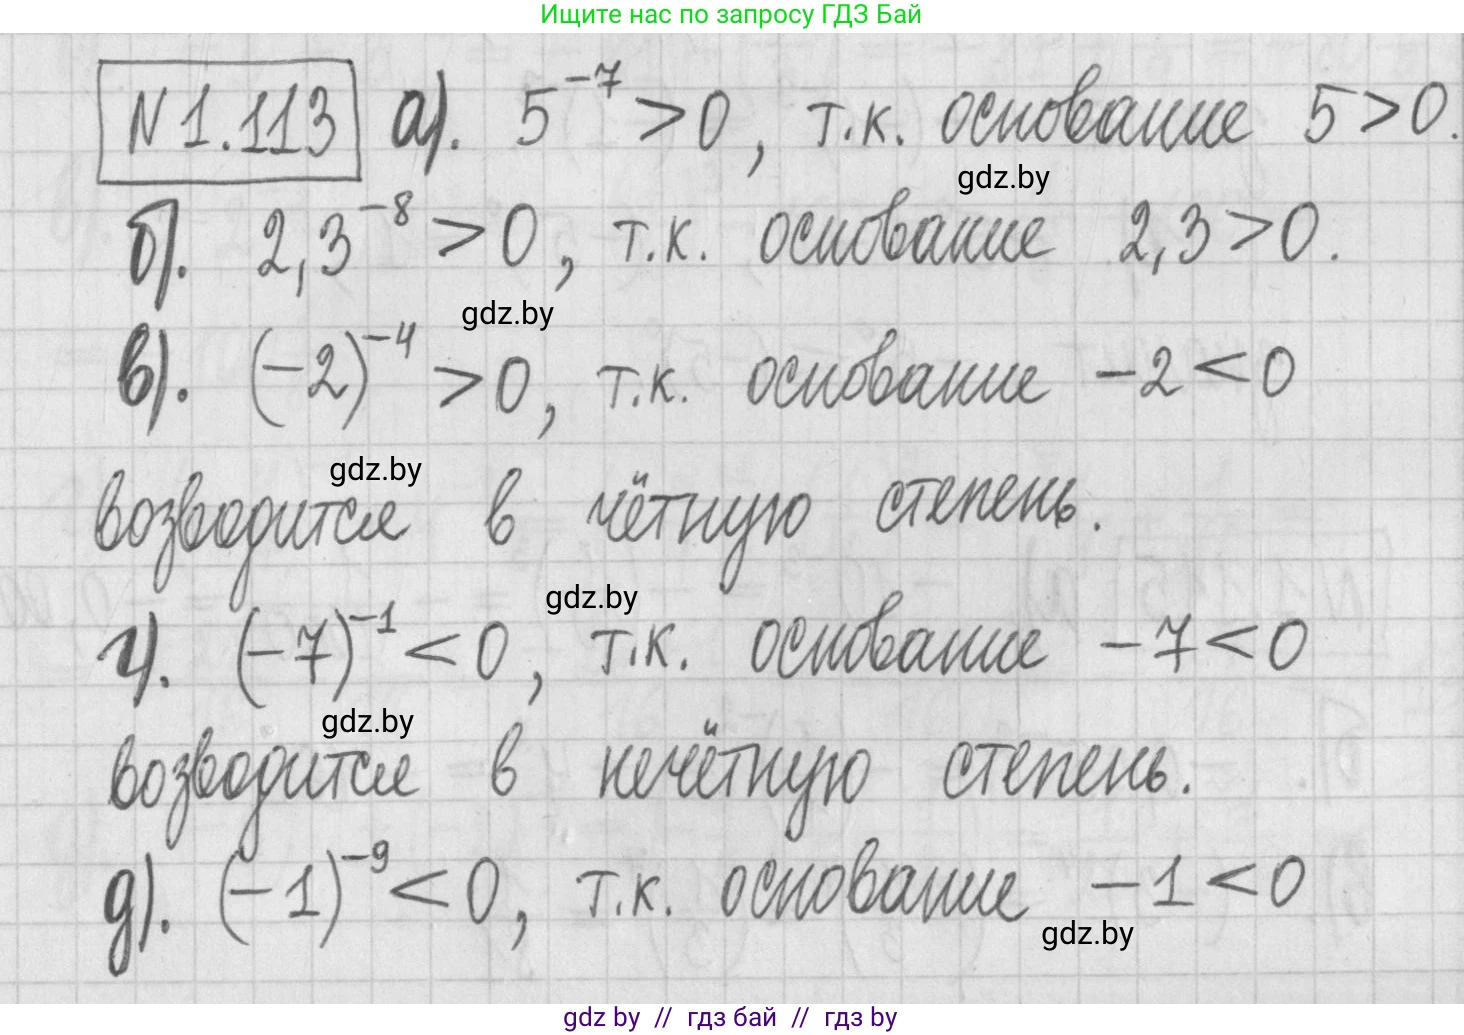 Ищите нас по запросу ГДЗ Бай
N 1.113 а). 5⁻⁷ > 0, т.к. основание 5 > 0.
gdz.by
б). 2,3⁻⁸ > 0, т.к. основание 2,3 > 0.
gdz.by
в). (−2)⁻⁴ > 0, т.к. основание −2 < 0
gdz.by
возводится в чётную степень.
gdz.by
г). (−7)⁻¹ < 0, т.к. основание −7 < 0
gdz.by
возводится в нечётную степень.
д). (−1)⁻⁹ < 0, т.к. основание −1 < 0
gdz.by
gdz by // гдз бай // гдз by